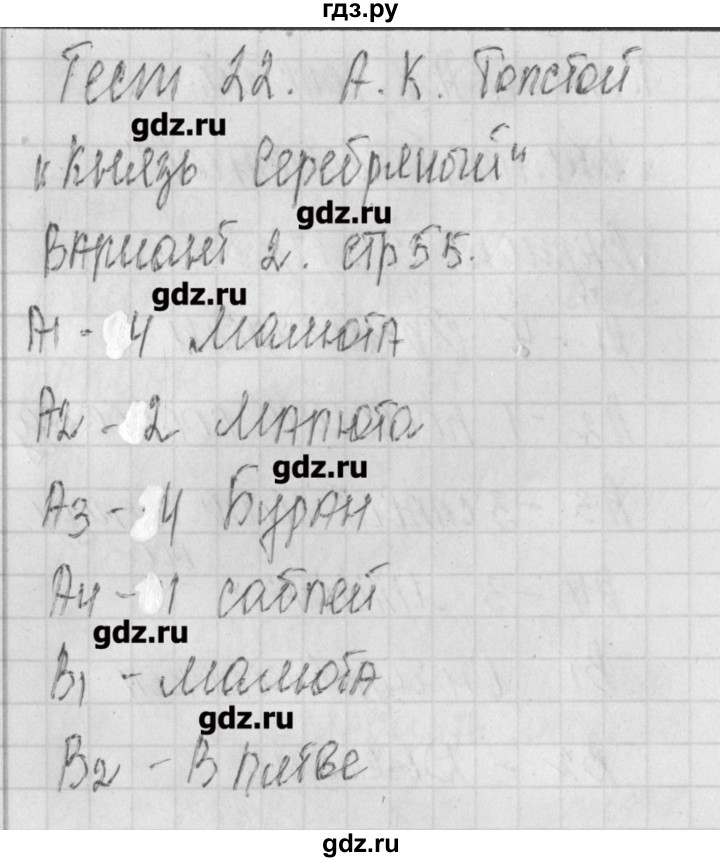 гдз.ру
Тест 22. А.К. Толстой
gdz.ru
"Князь Серебряный"
gdz.ru
Вариант 2. стр 55.
gdz.ru
А1 - 4 Малюта
А2 - 2 Малюта
gdz.ru
А3 - 4 Буран
А4 - 1 саблей
gdz.ru
В1 - Малюта
gdz.ru
В2 - В литве
gdz.ru